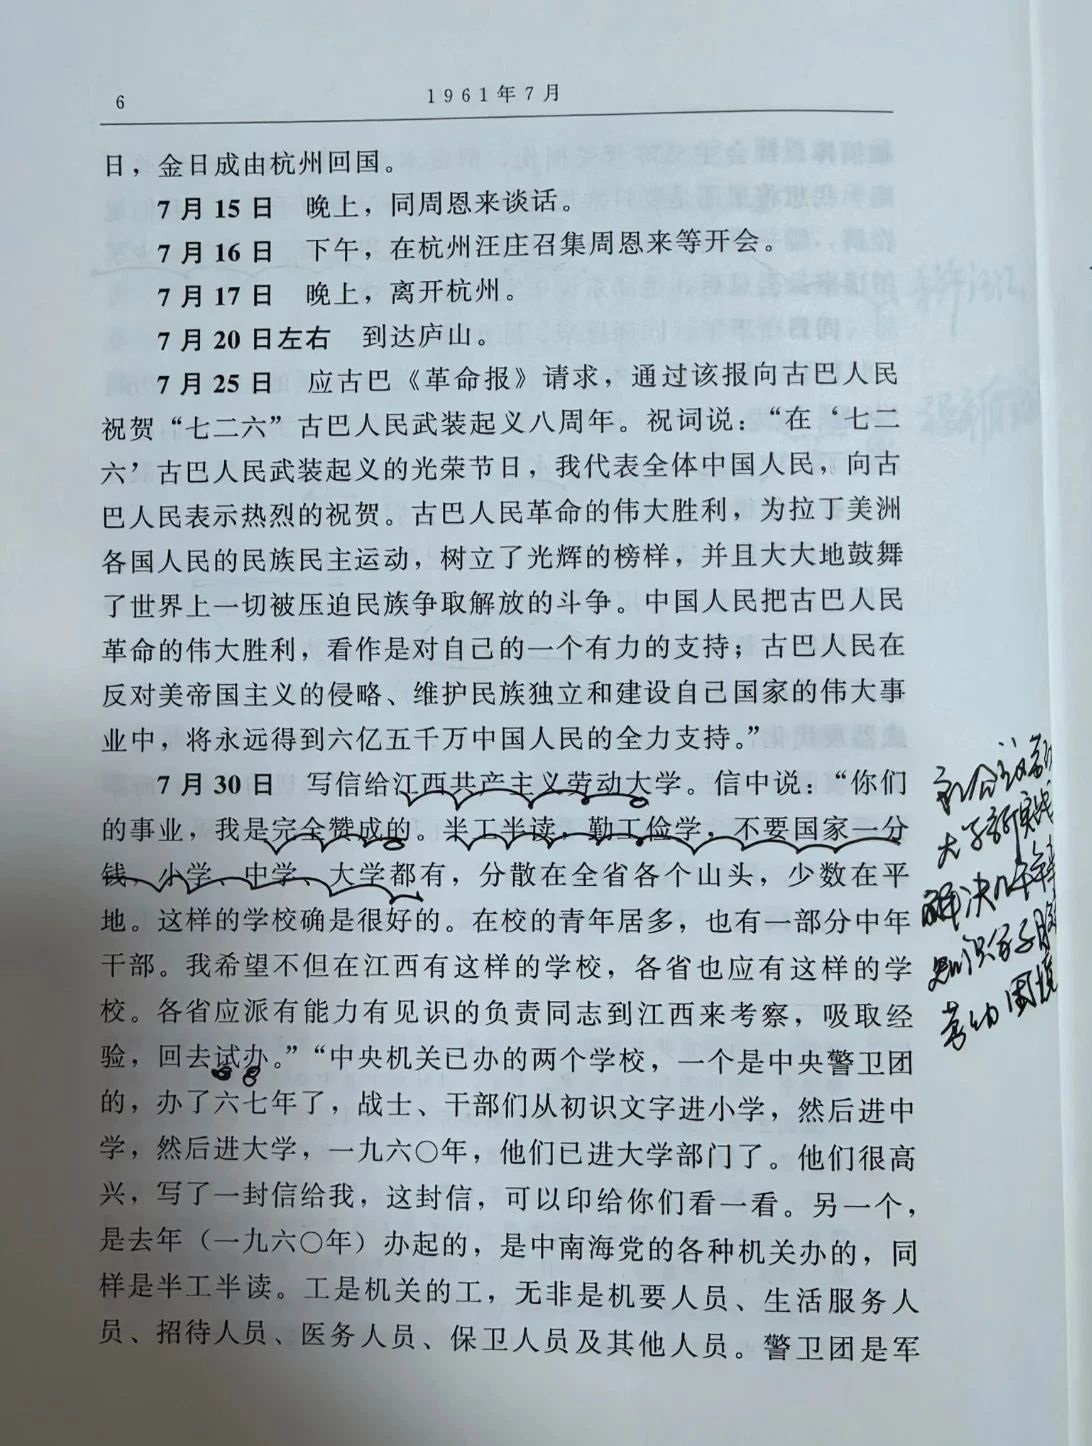 6
1961年7月
日，金日成由杭州回国。
7月15日 晚上，同周恩来谈话。
7月16日 下午，在杭州汪庄召集周恩来等开会。
7月17日 晚上，离开杭州。
7月20日左右 到达庐山。
7月25日 应古巴《革命报》请求，通过该报向古巴人民
祝贺“七二六”古巴人民武装起义八周年。祝词说：“在‘七二
六’古巴人民武装起义的光荣节日，我代表全体中国人民，向古
巴人民表示热烈的祝贺。古巴人民革命的伟大胜利，为拉丁美洲
各国人民的民族民主运动，树立了光辉的榜样，并且大大地鼓舞
了世界上一切被压迫民族争取解放的斗争。中国人民把古巴人民
革命的伟大胜利，看作是对自己的一个有力的支持；古巴人民在
反对美帝国主义的侵略、维护民族独立和建设自己国家的伟大事
业中，将永远得到六亿五千万中国人民的全力支持。”
7月30日 写信给江西共产主义劳动大学。信中说：“你们
的事业，我是完全赞成的。半工半读，勤工俭学，不要国家一分
钱，小学、中学、大学都有，分散在全省各个山头，少数在平
地。这样的学校确是很好的。在校的青年居多，也有一部分中年
干部。我希望不但在江西有这样的学校，各省也应有这样的学
校。各省应派有能力有见识的负责同志到江西来考察，吸取经
验，回去试办。”“中央机关已办的两个学校，一个是中央警卫团
的，办了六七年了，战士、干部们从初识文字进小学，然后进中
学，然后进大学，一九六〇年，他们已进大学部门了。他们很高
兴，写了一封信给我，这封信，可以印给你们看一看。另一个，
是去年（一九六〇年）办起的，是中南海党的各种机关办的，同
样是半工半读。工是机关的工，无非是机要人员、生活服务人
员、招待人员、医务人员、保卫人员及其他人员。警卫团是军
社会主义
大学新实践
解决几千年
知识分子脱
劳的困境